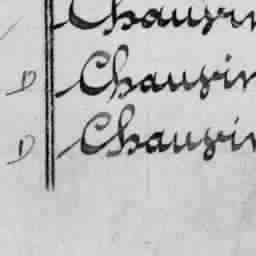 Chauvin
D Chauvin
D Chauvin